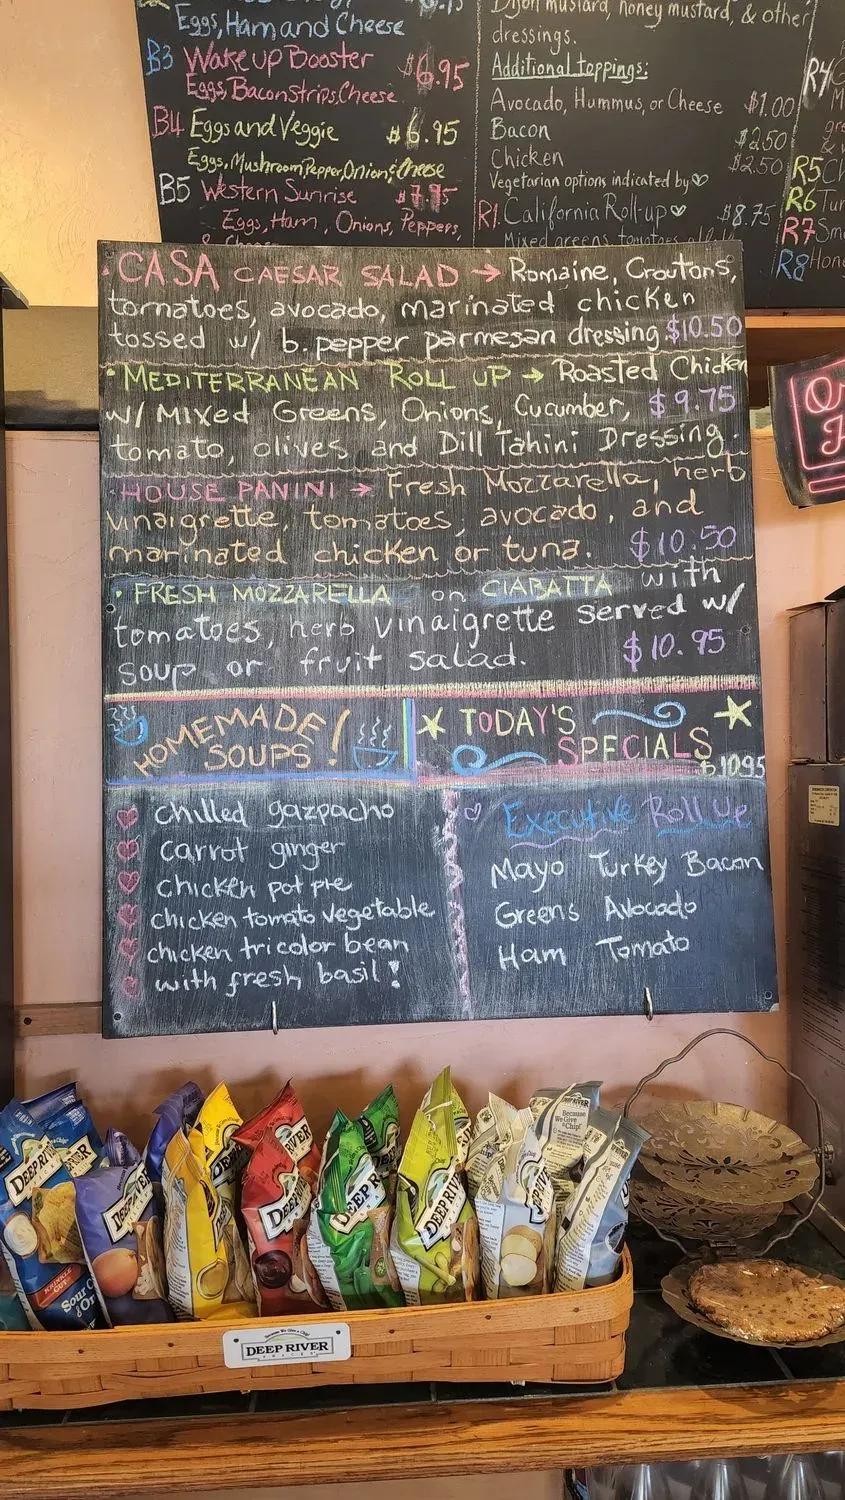 Eggs, Ham and Cheese
B3 Wake up Booster $6.95
Eggs, Bacon Strips, Cheese
B4 Eggs and Veggie $6.95
Eggs, Mushroom Pepper, Onion, & Cheese
B5 Western Sunrise $7.95
Eggs, Ham, Onions, Peppers,
& Cheese
Dijon mustard, honey mustard, & other
dressings.
Additional toppings:
Avocado, Hummus, or Cheese $1.00
Bacon $2.50
Chicken $2.50
Vegetarian options indicated by
R1. California Roll-up $8.75
Mixed greens, tomatoes
R4
R5
R6 Tur
R7 Smo
R8 Hon
• CASA CAESAR SALAD → Romaine, Croutons,
tomatoes, avocado, marinated chicken
tossed w/ b. pepper parmesan dressing. $10.50
• MEDITERRANEAN ROLL UP → Roasted Chicken
w/ Mixed Greens, Onions, Cucumber, $9.75
tomato, olives and Dill Tahini Dressing.
• HOUSE PANINI → Fresh Mozzarella, herb
vinaigrette, tomatoes, avocado, and
marinated chicken or tuna. $10.50
• FRESH MOZZARELLA on CIABATTA with
tomatoes, herb vinaigrette served w/
soup or fruit salad. $10.95
HOMEMADE
SOUPS!
TODAY'S
SPECIALS
$10.95
chilled gazpacho
carrot ginger
chicken pot pie
chicken tomato vegetable
chicken tricolor bean
with fresh basil!
Executive Roll Up
Mayo Turkey Bacon
Greens Avocado
Ham Tomato
DEEP RIVER
DEEP RIVER
DEEP RIVER
DEEP RIVER
DEEP RIVER
DEEP RIVER
DEEP RIVER
Because
We Give
a Chip!
KRINKLE
CUT
Sour C
Because We Give a Chip!
DEEP RIVER
SNACKS